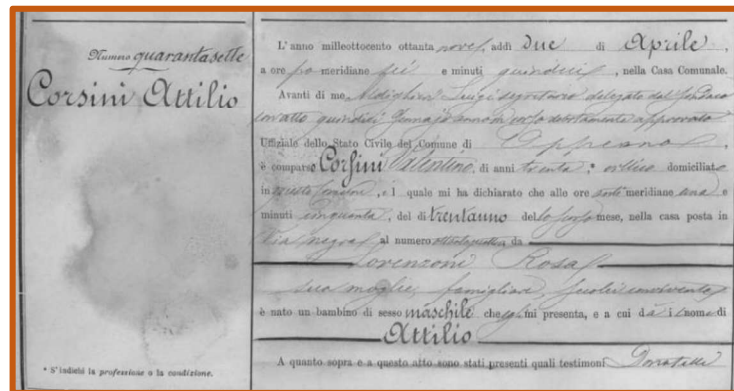 Numero quarantasette
Corsini Attilio
* S'indichi la professione o la condizione.
L'anno milleottocento ottanta nove, addì due di Aprile,
a ore po meridiane sei e minuti quindici, nella Casa Comunale.
Avanti di me Luigi segretario delegato dal Sindaco
con atto quindici approvato
Uffiziale dello Stato Civile del Comune di
è comparso Corsini Valentino, di anni trenta, * villico domiciliato
in questo Comune, il quale mi ha dichiarato che alle ore anti meridiane una e
minuti cinquanta, del dì trentuno dello scorso mese, nella casa posta in
Via al numero da
Lorenzoni Rosa
sua moglie, famigliare, seco lui convivente
è nato un bambino di sesso maschile che mi presenta, e a cui dà il nome di
Attilio
A quanto sopra e a questo atto sono stati presenti quali testimoni Donatelli